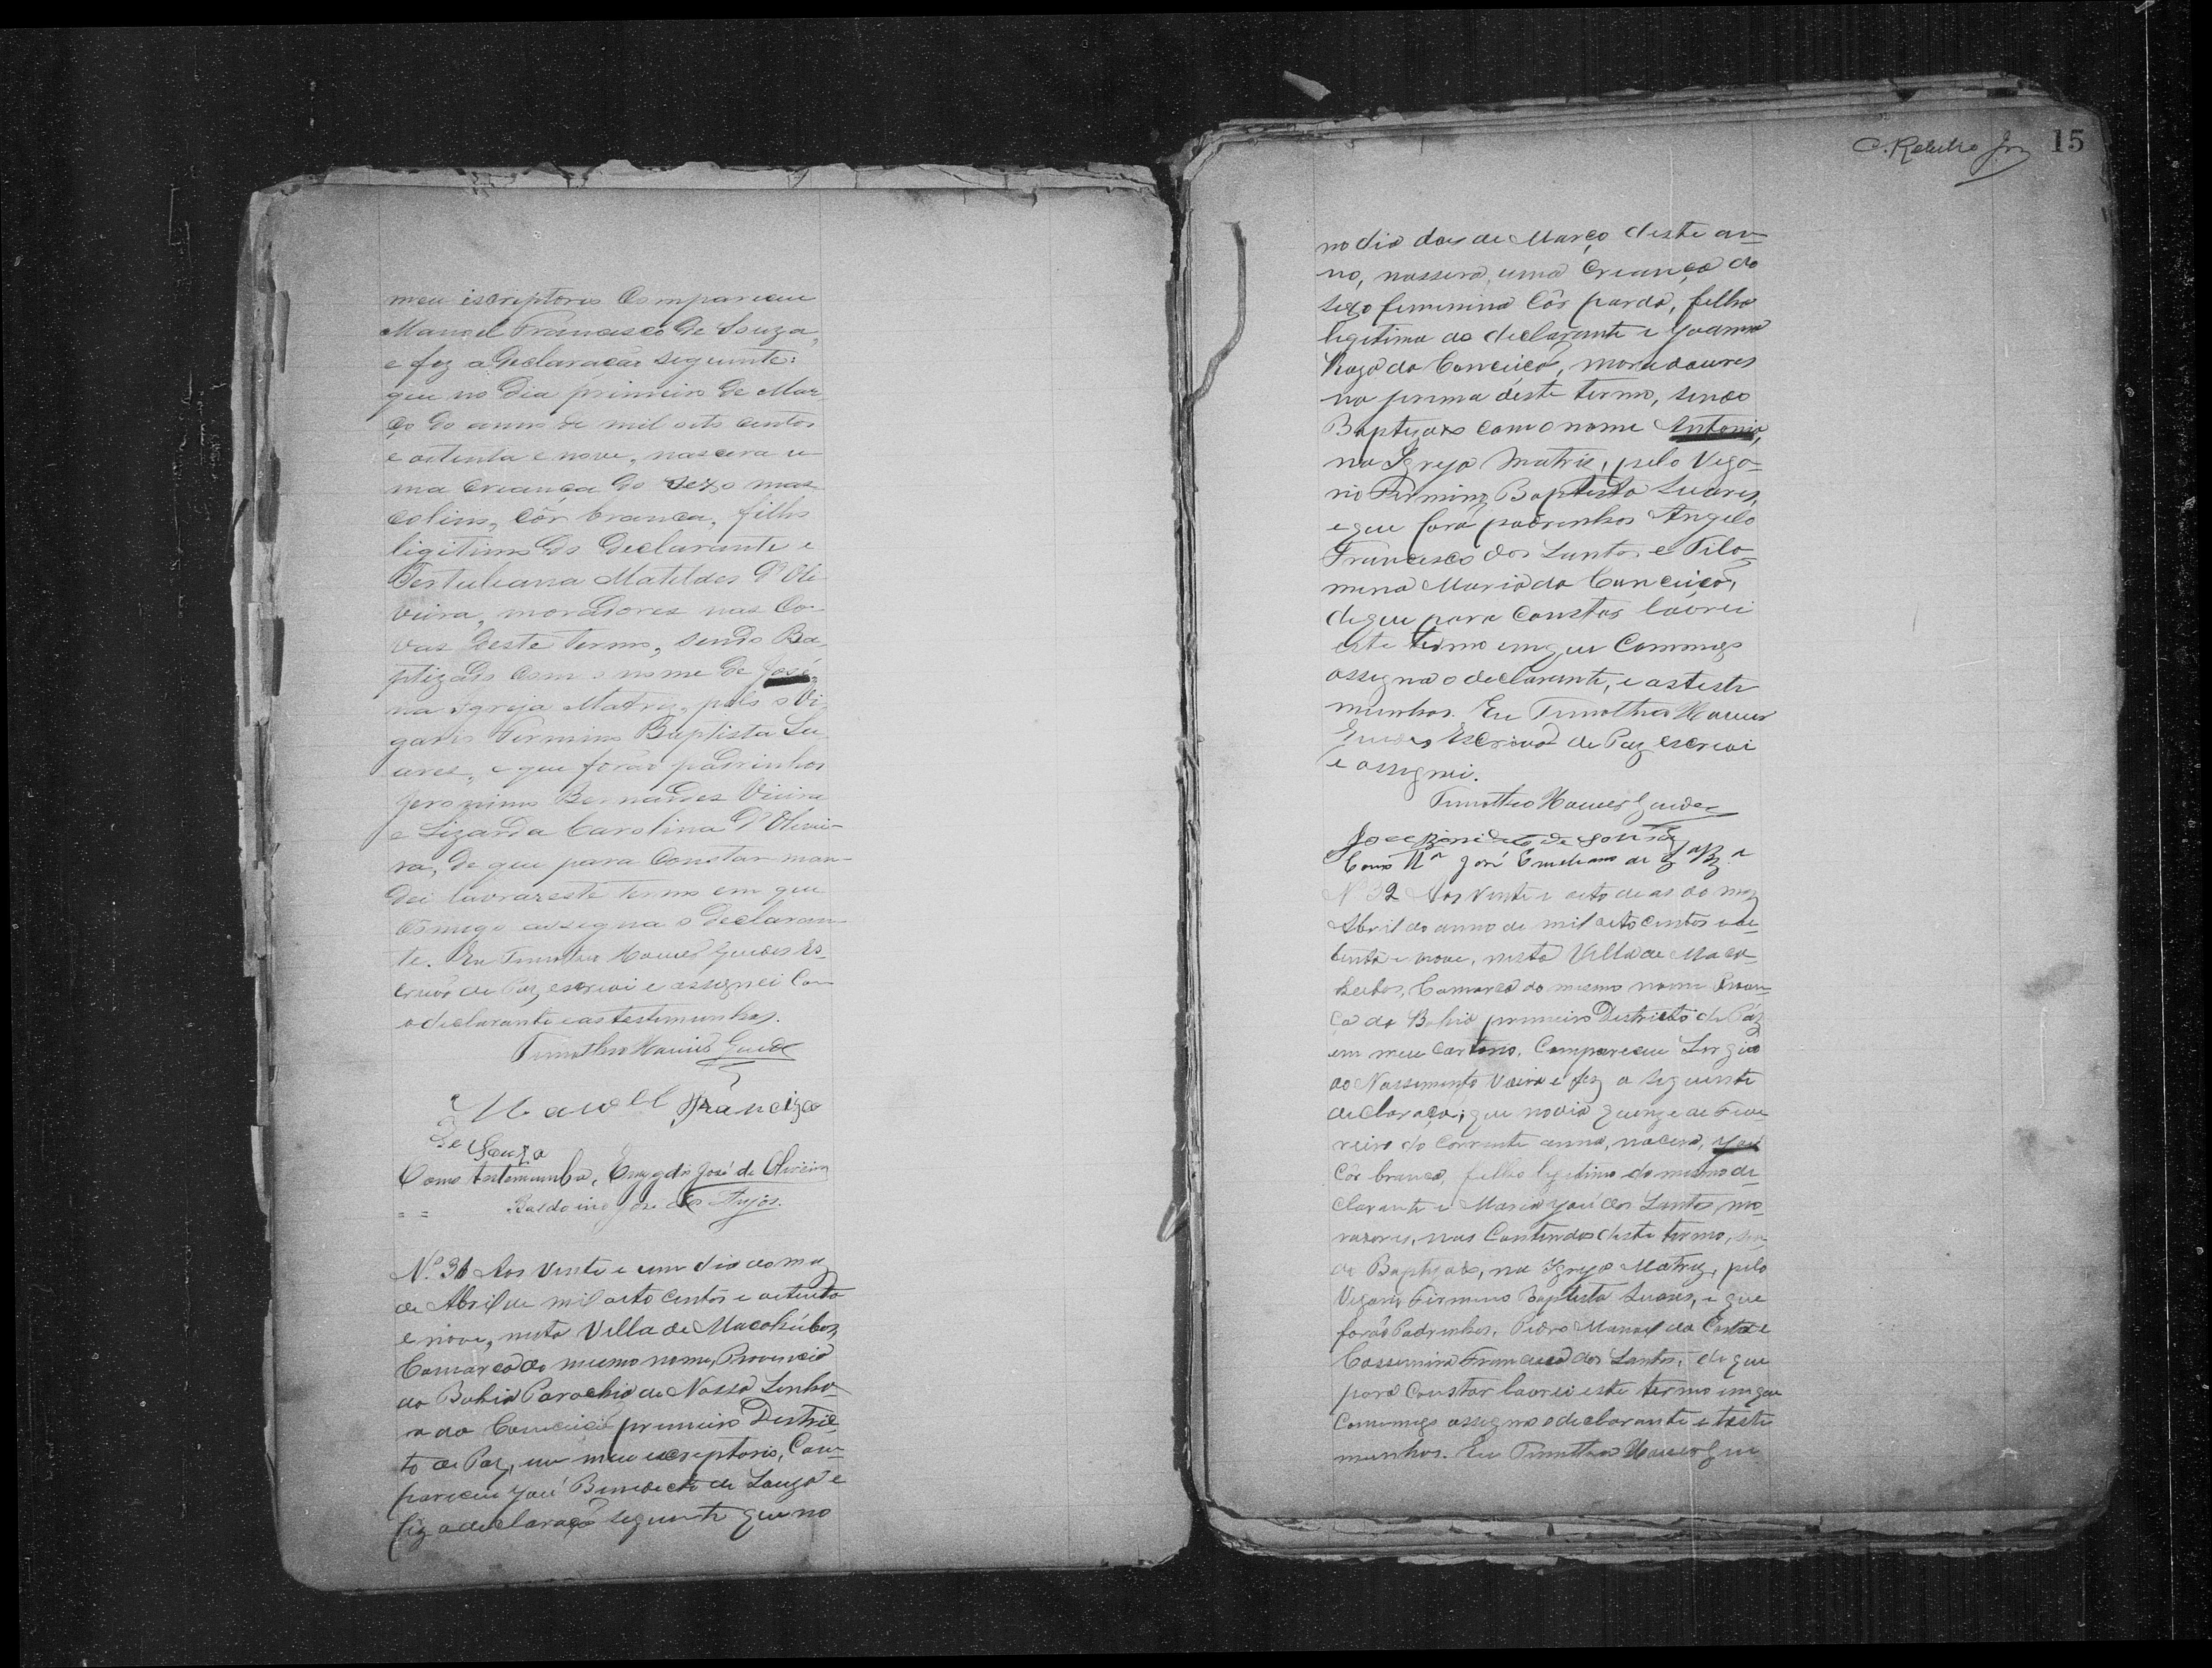 meu iscriptorio Compareceu
Manoel Francisco de Souza,
e fez a Declaração seguinte:
que no Dia primeiro de Mar
ço do anno de mil oito centos
e oitenta e nove, nascera u
ma Criança do Sexo mas
colino, Côr branca, filho
ligitimo do Declarante e
Tertuliana Matildes d'Oli
veira, moradores nas Co-
vas deste termo, sendo Ba
ptizado com o nome de José,
na Igreja Matriz, pelo o Vi
gario Firmino Baptista Su
ares, e que forão padrinhos
Jeronimo Bernardes Vieira
e Lizarda Carolina d'Olivei-
ra, de que para Constar man-
dei lavrar este termo em que
Comigo assigna o Declaran
te. Eu Timotheo Guedes Es-
crivão de Paz, escrevi e assignei Com
o declarante e as testemunhas.
Timotheo Guedes
Manoell Francizco
de Souza
Como testemunha, Emygdio José de Oliveira
= = Baldoino José dos Anjos.
Nº 31 Aos vinte e um dia do mez
de Abril de mil oito centos e oitenta
e nove, nesta Villa de Macahúbas,
Comarca do mesmo nome, Provincia
da Bahia Parochia de Nossa Senho-
ra da Conceição primeiro Distric
to de Paz, em meu escriptorio, Com-
pareceu José Benedicto de Souza e
fez a declaração seguinte que no
C. Rebello Jor 15
no dia dois de Março deste an-
no, nassera uma Criança do
sexo feminina Côr parda, filha
legitima do declarante e Joanna
Roza da Conceição, moradoures
na deste termo, sendo
Baptizado com o nome Antonia,
na Igreja Matriz, pelo Viga-
rio Firmino Baptista Suares,
e que forão padrinhos Angelo
Francisco dos Santos e Filo-
mena Maria da Conceição,
de que para Constar lavrei
este termo em que Commigo
assigna o declarante, e as teste
munhas. Eu Timotheo
Guedes Escrivão de Paz escrevi
e assignei.
Timotheo Guedes
José Benidito de Souza
Como José de
Nº 32 Aos Vinte e oito dias do mez
Abril do anno de mil oito centos e oi-
tenta e nove, nesta Villa de Maca-
hubas, Comarca do mesmo nome Provin
ca da Bahia primeiro Districto de Páz
em meu Cartorio, Compareceu Sergio
do Nassimento Vieira e fez a seguinte
declaração; que no dia quinze de Feve
reiro do Corrente anno, nacera, José
Côr branca, filho legitimo do mesmo de-
clarante e Maria José dos Santos, mo-
radores, nas Contendas deste termo, sen
do Baptizado, na Igreja Matriz, pelo
Vigario Firmino Baptista Suares, e que
forão Padrinhos, Pedro Manoel da Costa e
Cassemira Francisca dos Santos, de que
para Constar lavrei este termo em que
Commigo assigna o declarante e teste
munhas. Eu Timotheo Gue